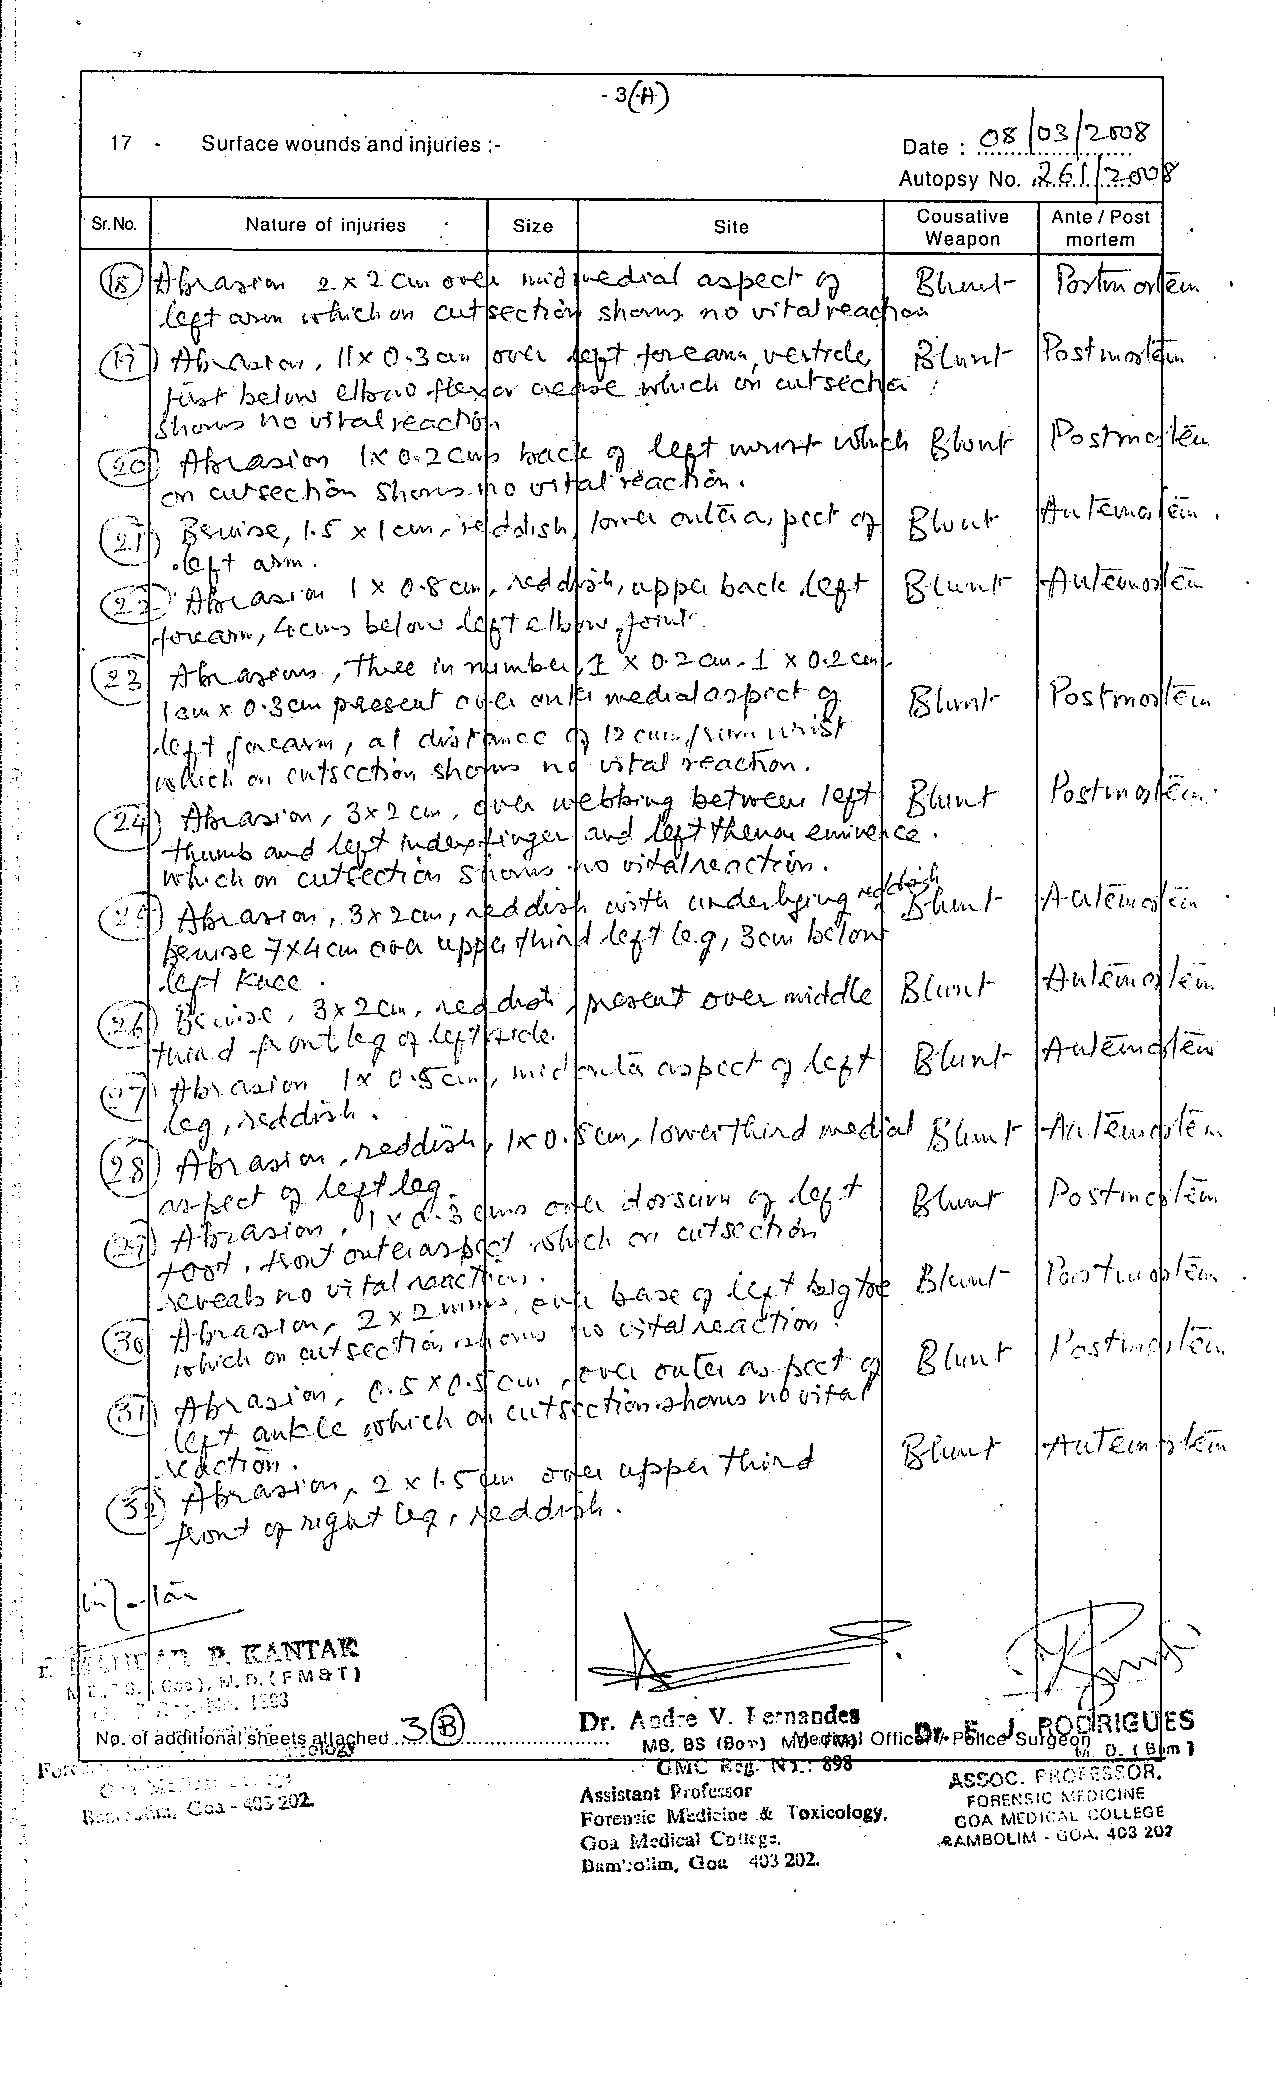 - 3(A)
17 - Surface wounds and injuries :-
Date : 08/03/2008
Autopsy No. 261/2008
Sr.No. Nature of injuries Size Site Cousative Weapon Ante / Post mortem
(18) Abrasion 2 x 2 cm over mid medial aspect of Blunt Postmortem
left arm which on cutsection shows no vital reaction
(19) Abrasion, 11 x 0.3 cm over left forearm, verticle, Blunt Postmortem
just below elbow flexor crease which on cutsection
shows no vital reaction
(20) Abrasion 1 x 0.2 cms back of left wrist which Blunt Postmortem
on cutsection shows no vital reaction.
(21) Bruise, 1.5 x 1 cm, reddish, lower outer aspect of Blunt Antemortem
left arm.
(22) Abrasion 1 x 0.8 cm, reddish, upper back left Blunt Antemortem
forearm, 4 cms below left elbow joint.
(23) Abrasions, three in number, 1 x 0.2 cm. 1 x 0.2 cm,
1 cm x 0.3 cm present over outer medial aspect of Blunt Postmortem
left forearm, at distance of 12 cms from wrist
which on cutsection shows no vital reaction.
(24) Abrasion, 3 x 2 cm, over webbing between left Blunt Postmortem
thumb and left index finger and left thenar eminence.
which on cutsection shows no vital reaction.
(25) Abrasion, 3 x 2 cm, reddish with underlying reddish Blunt Antemortem
bruise 7 x 4 cm over upper third left leg, 3 cm below
left knee.
(26) Bruise, 3 x 2 cm, reddish, present over middle Blunt Antemortem
third front leg of left side.
(27) Abrasion 1 x 0.5 cm, mid outer aspect of left Blunt Antemortem
leg, reddish.
(28) Abrasion, reddish, 1 x 0.5 cm, lower third medial Blunt Antemortem
aspect of left leg.
(29) Abrasion, 1 x 0.3 cms over dorsum of left Blunt Postmortem
foot, front outer aspect which on cutsection
reveals no vital reaction.
(30) Abrasion, 2 x 2 mms, over base of left big toe Blunt Postmortem
which on cutsection shows no vital reaction.
(31) Abrasion, 0.5 x 0.5 cm, over outer aspect of Blunt Postmortem
left ankle which on cutsection shows no vital
reaction.
(32) Abrasion, 2 x 1.5 cm over upper third Blunt Antemortem
front of right leg, reddish.
P. KANTAK
M.D. (FM&T)
No. of additional sheets attached 3(B)
Goa - 403 202.
Dr. Andre V. Fernandes
MB, BS (Bom) MD (FM)
GMC Reg. No.: 898
Assistant Professor
Forensic Medicine & Toxicology,
Goa Medical College,
Bambolim, Goa 403 202.
Medical Officer / Police Surgeon
Dr. E. J. RODRIGUES
M. D. (Bom)
ASSOC. PROFESSOR,
FORENSIC MEDICINE
GOA MEDICAL COLLEGE
BAMBOLIM - GOA. 403 202